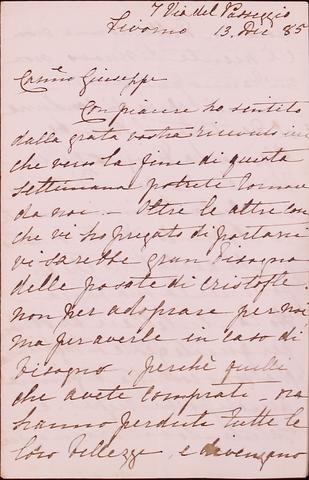 7 Via del Passeggio
Livorno 13. Dic 85
Carmo Giuseppe
Con piacere ho sentito
dalla grata vostra ricevuta
che verso la fine di questa
settimana potrete tornare
da noi. — Oltre le altre cose
che vi ho pregato di portarmi
vi sarebbe gran bisogno
delle posate di cristofle.
non per adoprare per noi
ma per averle in caso di
bisogno, perchè quelli
che avete comprati — ora
hanno perduto tutte le
loro bellezze, e divengano